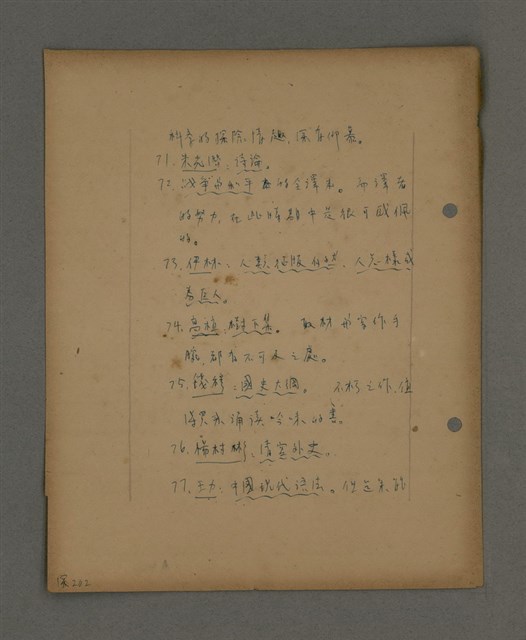 科学的探險情趣，深有印象。
71. 朱光潛：詩論。
72. 手 的全譯本。而譯者
的努力，在此時期中是很可感佩
的。
73. 伊林：人類征服自然、人怎樣成
為巨人。
74. 高植：樹下集。 取材和寫作手
腕，都有不可 之處。
75. 錢穆：國史大綱。 不朽之作，值
得 誦讀吟味的書。
76. 楊村彬：清宮外史。
77. 王力：中國現代語法。 但
282